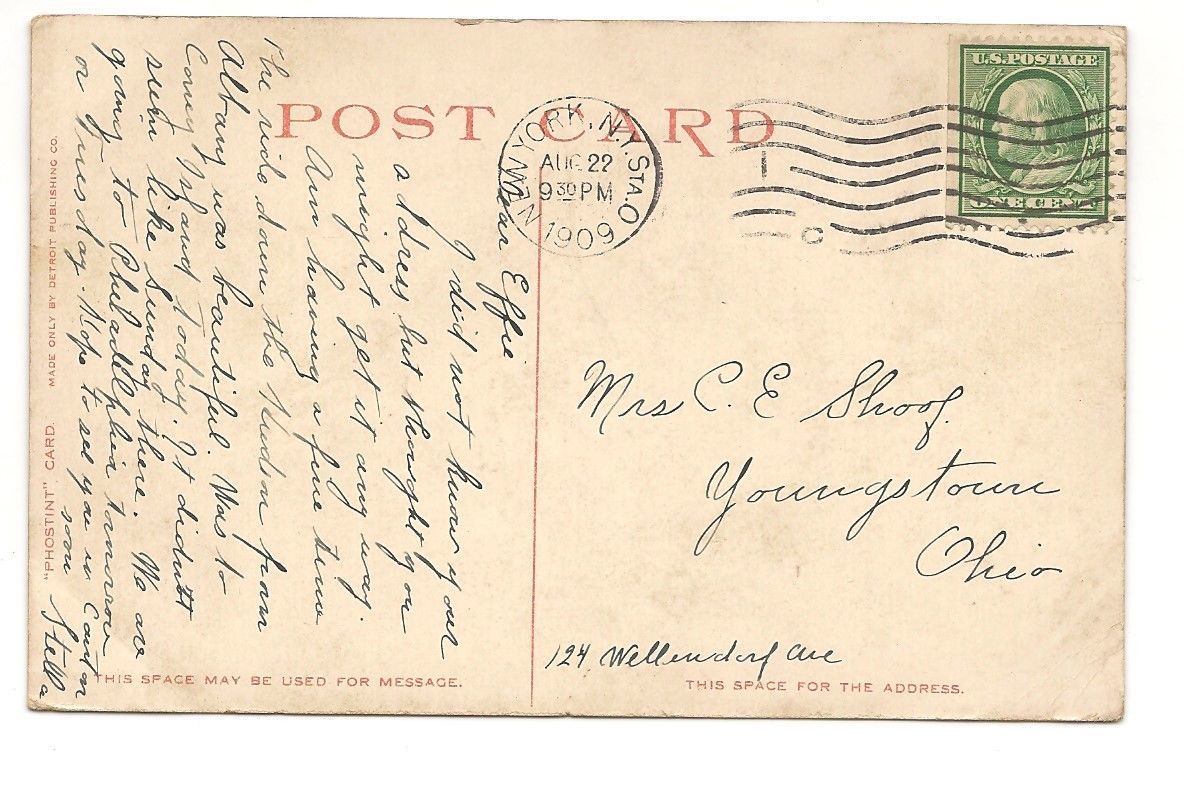 POST CARD
U.S. POSTAGE
ONE CENT
NEW YORK, N.Y. STA. O
AUG 22
9 30 PM
1909
I
C
Dear Effie
I did not know your
address but thought you
might get it any way.
Am having a fine time
The ride down the Hudson from
Albany was beautiful. Was to
Coney Island today. It didn't
seem like Sunday there. We are
going to Philadelphia tomorrow
or Tuesday. Hope to see you in Canton
soon Stella
Mrs C. E Shoof.
Youngstown
Ohio
124 Wellendorf Ave
"PHOSTINT" CARD. MADE ONLY BY DETROIT PUBLISHING CO.
THIS SPACE MAY BE USED FOR MESSAGE.
THIS SPACE FOR THE ADDRESS.